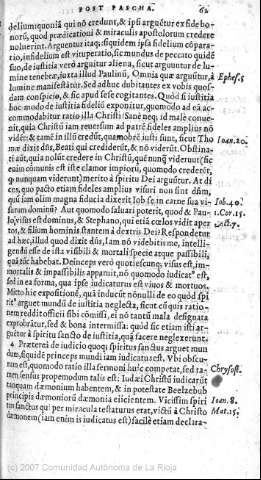 POST PASCHA. 62
deliũ iniquoniã qui nõ credunt, & ipsi arguẽtur ex fide bo-
norũ, quod prædicationi & miraculis apostolorum credere
noluerint. Arguentur itaq; siquidem ipsa fidelium cõpara-
tio, infidelium est vituperatio, sic mundus de peccato quidẽ
suo, de iustitia verò arguitur aliena, sicut arguuntur de lu-
mine tenebræ, iuxta illud Paulinũ, Omnia quæ arguũtur, à Ephes. 5
lumine manifestãtur. Sed adhuc dubitantes ex vobis quos-
dam conspicio, & sic apud sese cogitantes. Quòd si iustitia
hoc modo de iustitia fideliũ exponitur, quomodo ad eã ac-
commodabitur ratio illa Christi? Sanè neq; id malè conue-
nit, quia Christũ iam reuersum ad patrẽ fideles amplius nõ
vidẽt: & tamẽ in illũ credũt, quamobrẽ iusti sunt, sicut Tho
mæ dixit dñs, Beati qui crediderũt, & nõ viderũt. Obstina- Ioan. 20.
ti aũt, quia nolũt credere in Christũ, quẽ nunq̃ viderunt (sic
enim cõmunis est iste clamor impiorũ, quomodo credẽt,
q̃ nunquam viderunt) meritò à spiritu Dei arguũtur. At di
ces, quo pacto etiam fideles amplius visuri non sint dñm,
qui iam olim magna fiducia dixerit Iob se in carne sua vi- Iob. 19.
surum dominũ? Aut quomodo saluari poterit, quod & Pau-
lo visus est dominus, & Stephano, qui etiã cælos vidit aper 1. Cor. 15.
tos, & filium hominis stantem à dextris Dei? Respõdetur Act. 7.
ad hæc, illud quod dixit dñs, Iam nõ videbitis me, intelli-
gendũ esse de ista visibili & mortali specie atque passibili,
quã tũc habebat. Deinceps verò quotiescunq; visus est, im-
mortalis & impassibilis apparuit, nõ quomodo iudicat9 est,
sed in ea forma, qua ipse iudicaturus est viuos & mortuos.
Mitto hic expositionẽ, quã inducũt nõnulli de eo quòd spi
rit9 arguet mundũ de iustitia neglecta, sicut ẽsquũt ratio-
nem reddit officii sibi cõmissi, ei nõ tantũ mala designata
exprobrãtur, sed & bona intermissa: quòd sic etiam isti ar-
guẽtur à spiritu sancto de iustitia, quã facere neglexerunt.
Præterea de iudicio quoq; spiritus sanctus arguet mun
dum, siquidẽ princeps mundi iam iudicatus est. Vbi obscu-
rum est, quomodo ratio illa sermoni huic competat, sed ta-
tem sensus propemodum talis est: Iudæi Christũ iudicarũt Chrysost.
tanquam dæmonium habentem, & in potestate Beelzebub
principis dæmoniorũ dæmonia eiicientem. Vicissim spiri Ioan. 8.
tus sanctus qui per miracula testaturus erat, victũ à Christo Mat. 15.
dæmonem (iam enim is iudicatus est) facilè etiam declara-
(c) 2007 Comunidad Autónoma de La Rioja